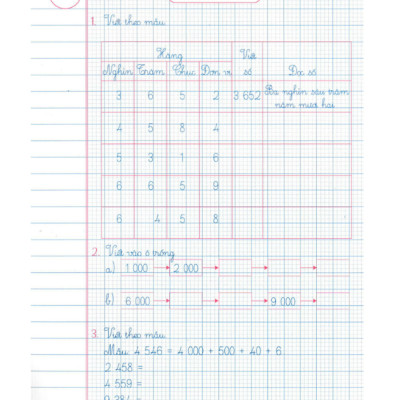 1. Viết theo mẫu
Hàng Viết
Nghìn Trăm Chục Đơn vị số Đọc số
3 6 5 2 3 652 Ba nghìn sáu trăm
năm mươi hai
4 5 8 4
5 3 1 6
6 6 5 9
6 4 5 8
2. Viết vào ô trống
a) 1 000 2 000
b) 6 000 9 000
3. Viết theo mẫu
Mẫu: 4 546 = 4 000 + 500 + 40 + 6
2 458 =
4 559 =
9 384 =